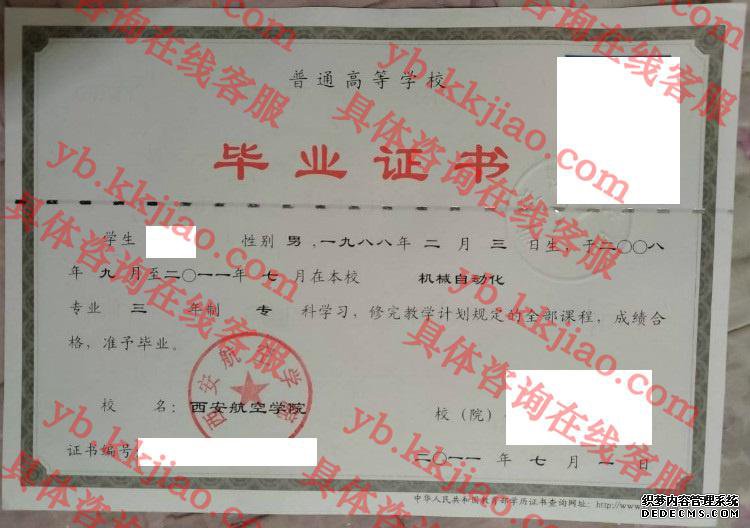 普通高等学校
毕业证书
学生 性别 男 ,一九八八年 二 月 三 日生，于二〇〇八
年 九 月至二〇一一年 七 月在本校 机械自动化
专业 三 年制 专 科学习，修完教学计划规定的全部课程，成绩合
格，准予毕业。
西安航空学院
校 名：西安航空学院 校（院）
证书编号：
二〇一一 年 七 月 一 日
中华人民共和国教育部学历证书查询网址：http://www.
具体咨询在线客服
yb.kkjiao.com
具体咨询在线客服
yb.kkjiao.com
具体咨询在线客服
yb.kkjiao.com
织梦内容管理系统
DEDECMS.COM